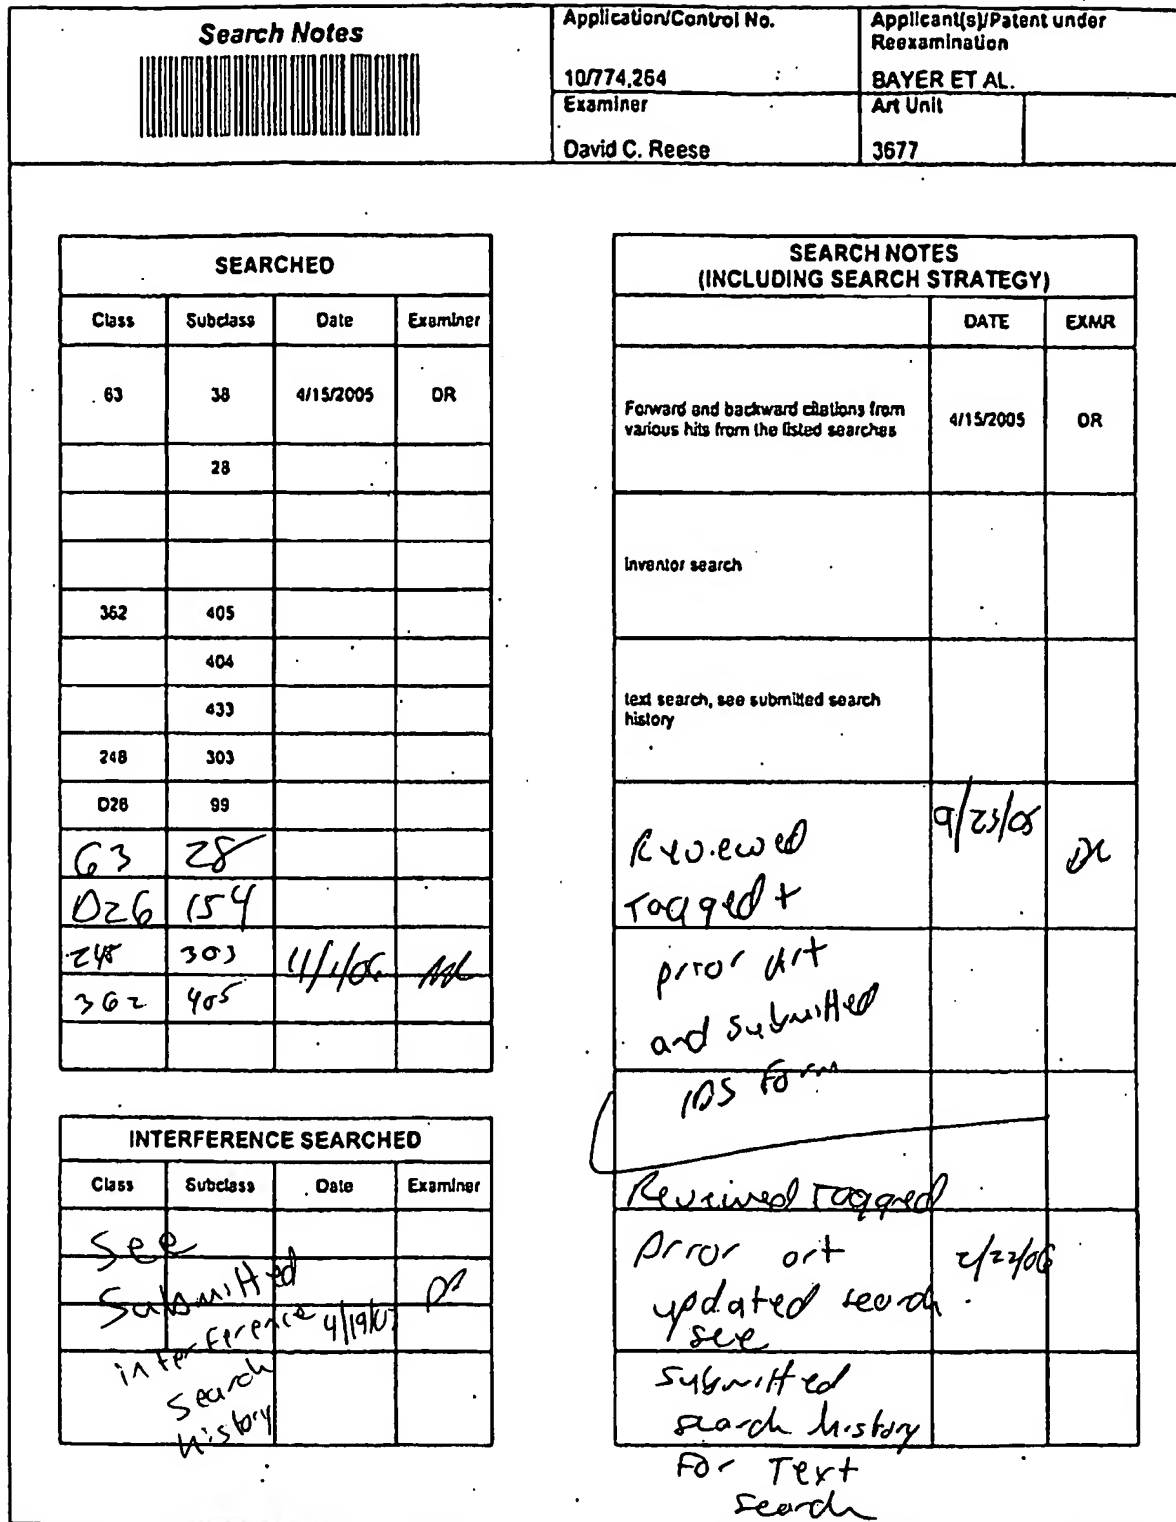 Search Notes
Application/Control No.
10/774,264
Applicant(s)/Patent under
Reexamination
BAYER ET AL.
Examiner
David C. Reese
Art Unit
3677
SEARCHED
Class Subclass Date Examiner
63 38 4/15/2005 DR
28
362 405
404
433
248 303
D26 99
63 28
D26 154
248 303
362 405
INTERFERENCE SEARCHED
Class Subclass Date Examiner
See
Submitted
interference 4/19/0
Search
history
SEARCH NOTES
(INCLUDING SEARCH STRATEGY)
DATE EXMR
Forward and backward citations from
various hits from the listed searches
4/15/2005 DR
Inventor search
text search, see submitted search
history
Reviewed 9/23/05
Tagged +
prior art
and submitted
IDS Form
Reviewed Tagged
Prior art 2/22/06
updated search
see
submitted
search history
For Text
search